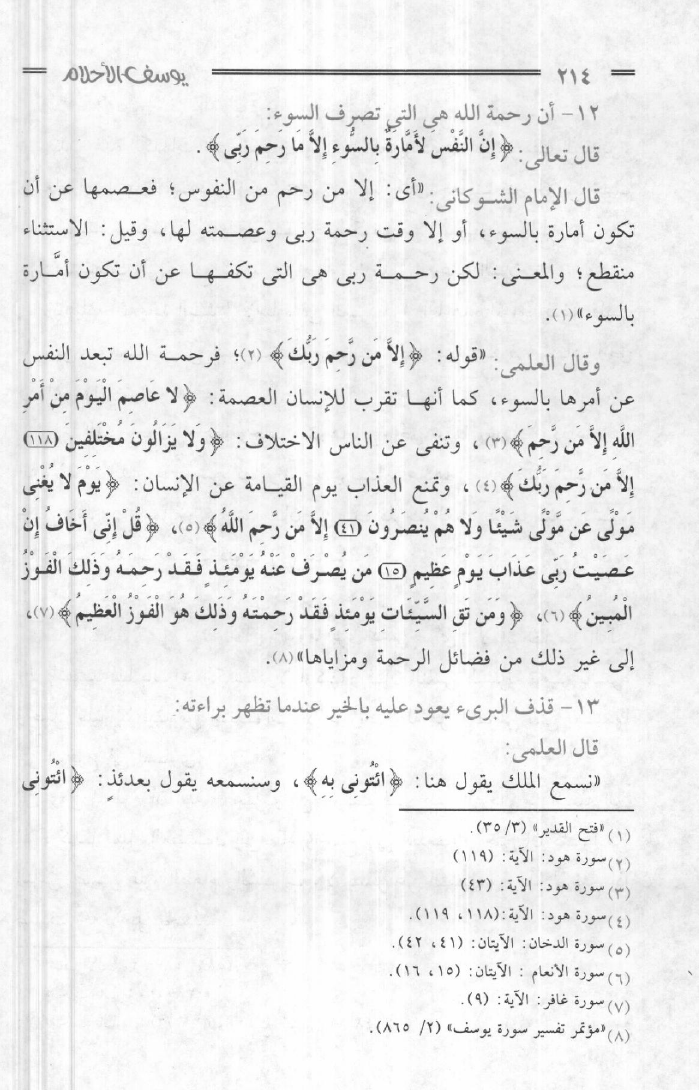 ٢١٤ يوسف الأحلام
١٢- أن رحمة الله هى التى تصرف السوء:
قال تعالى: ﴿ إِنَّ النَّفْسَ لأَمَّارَةٌ بِالسُّوءِ إِلاَّ مَا رَحِمَ رَبِّى ﴾ .
قال الإمام الشـوكانى: «أى: إلا من رحم من النفوس؛ فعـصمها عن أن
تكون أمارة بالسوء، أو إلا وقت رحمة ربى وعصـمته لها، وقيل: الاستثناء
منقطع؛ والمعنـى: لكن رحـمـة ربى هى التى تكفـهـا عن أن تكون أمَّارة
بالسوء»(١).
وقال العلمى: «قوله: ﴿ إِلاَّ مَن رَّحِمَ رَبُّكَ ﴾ (٢)؛ فرحمة الله تبعد النفس
عن أمرها بالسوء، كما أنهـا تقرب للإنسان العصمة: ﴿ لا عَاصِمَ الْيَوْمَ مِنْ أَمْرِ
اللَّهِ إِلاَّ مَن رَّحِمَ ﴾(٣) ، وتنفى عن الناس الاختلاف: ﴿ وَلا يَزَالُونَ مُخْتَلِفِينَ (١١٨)
إِلاَّ مَن رَّحِمَ رَبُّكَ ﴾(٤) ، وتمنع العذاب يوم القيـامة عن الإنسان: ﴿ يَوْمَ لا يُغْنِى
مَوْلًى عَن مَّوْلًى شَيْئًا وَلا هُمْ يُنصَرُونَ (٤١) إِلاَّ مَن رَّحِمَ اللَّهُ ﴾(٥)، ﴿ قُلْ إِنِّى أَخَافُ إِنْ
عَـصَيْتُ رَبِّى عَذَابَ يَوْمٍ عَظِيمٍ (١٥) مَن يُصْـرَفْ عَنْهُ يَوْمَـئِـذٍ فَـقَـدْ رَحِمَـهُ وَذَلِكَ الْفَـوْزُ
الْمُبِينُ ﴾(٦)، ﴿ وَمَن تَقِ السَّيِّئَاتِ يَوْمَئِذٍ فَقَدْ رَحِمْتَهُ وَذَلِكَ هُوَ الْفَوْزُ الْعَظِيمُ ﴾(٧)،
إلى غير ذلك من فضائل الرحمة ومزاياها»(٨).
١٣- قذف البرىء يعود عليه بالخير عندما تظهر براءته:
قال العلمى:
«نسمع الملك يقول هنا: ﴿ ائْتُونِى بِهِ ﴾ ، وسنسمعه يقول بعدئذٍ: ﴿ ائْتُونِى
(١) «فتح القدير» (٣/ ٣٥).
(٢) سورة هود: الآية: (١١٩)
(٣) سورة هود: الآية: (٤٣)
(٤) سورة هود: الآية:(١١٨، ١١٩).
(٥) سورة الدخان: الآيتان: (٤١، ٤٢).
(٦) سورة الأنعام : الآيتان: (١٥، ١٦).
(٧) سورة غافر: الآية: (٩).
(٨) «مؤتمر تفسير سورة يوسف» (٢/ ٨٦٥).